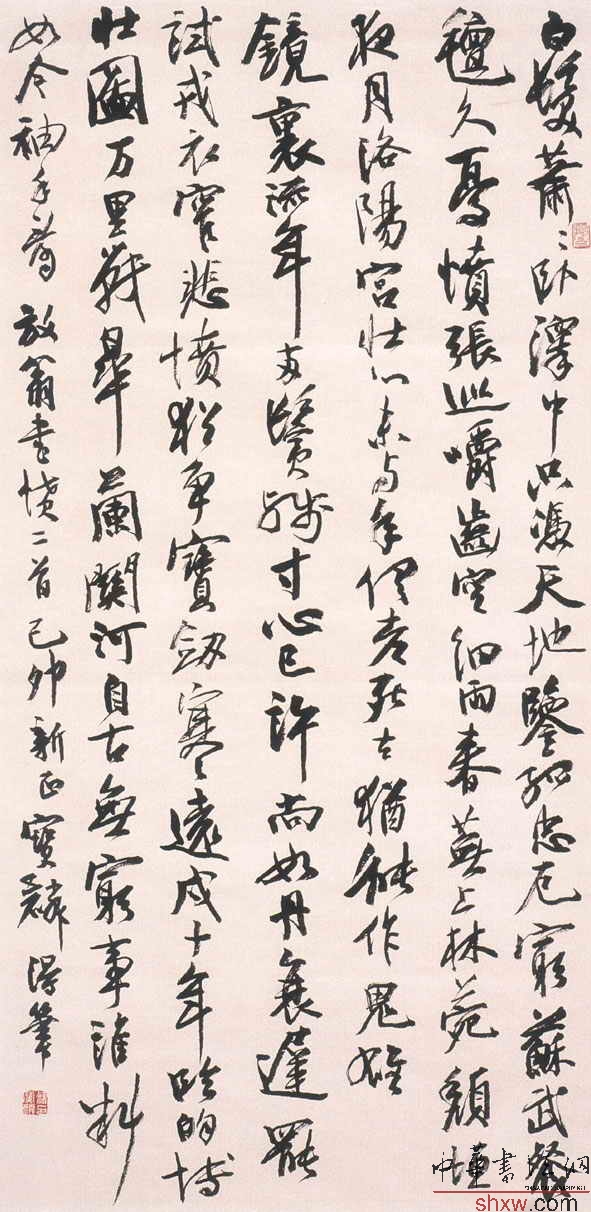 白髮蕭〻卧澤中只憑天地鑒孤忠厄窮蘇武餐
氈久憂憤張巡嚼齒空細雨春蕪上林菀頹垣
夜月洛陽宮壯心未与年俱老死去猶能作鬼雄
鏡裏流年两鬢殘寸心已許尚如丹衰遲罷
試戎衣窄悲憤猶争寶劔寒遠戍十年临的博
壮圖万里戰皋蘭關河自古無窮事誰料
如今袖手看 放翁書憤二首己卯新正寶麟筆
shxw.com